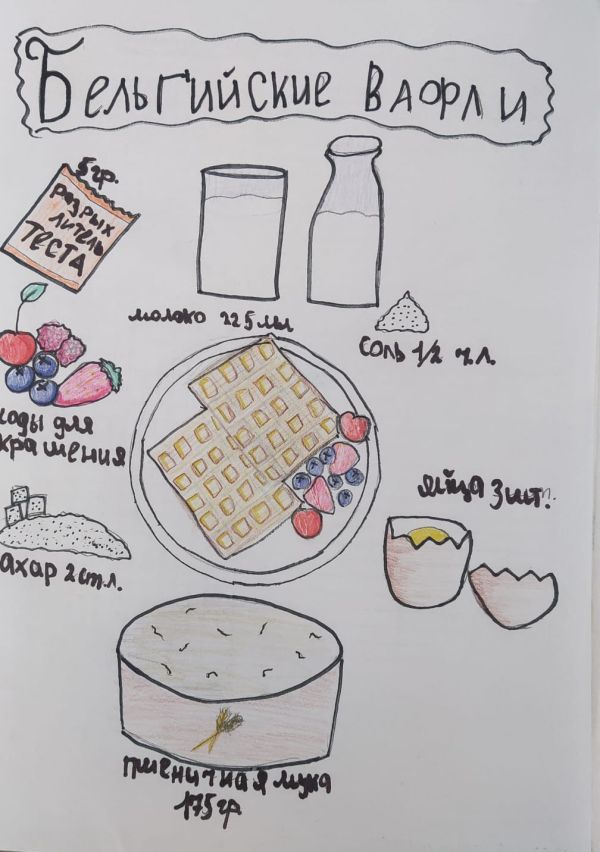 Бельгийские вафли
5гр.
разрых
литель
теста
молоко 225мл
соль 1/2 ч.л.
годы для
крашения
яйца 3шт.
ахар 2ст.л.
пшеничная мука
175гр.